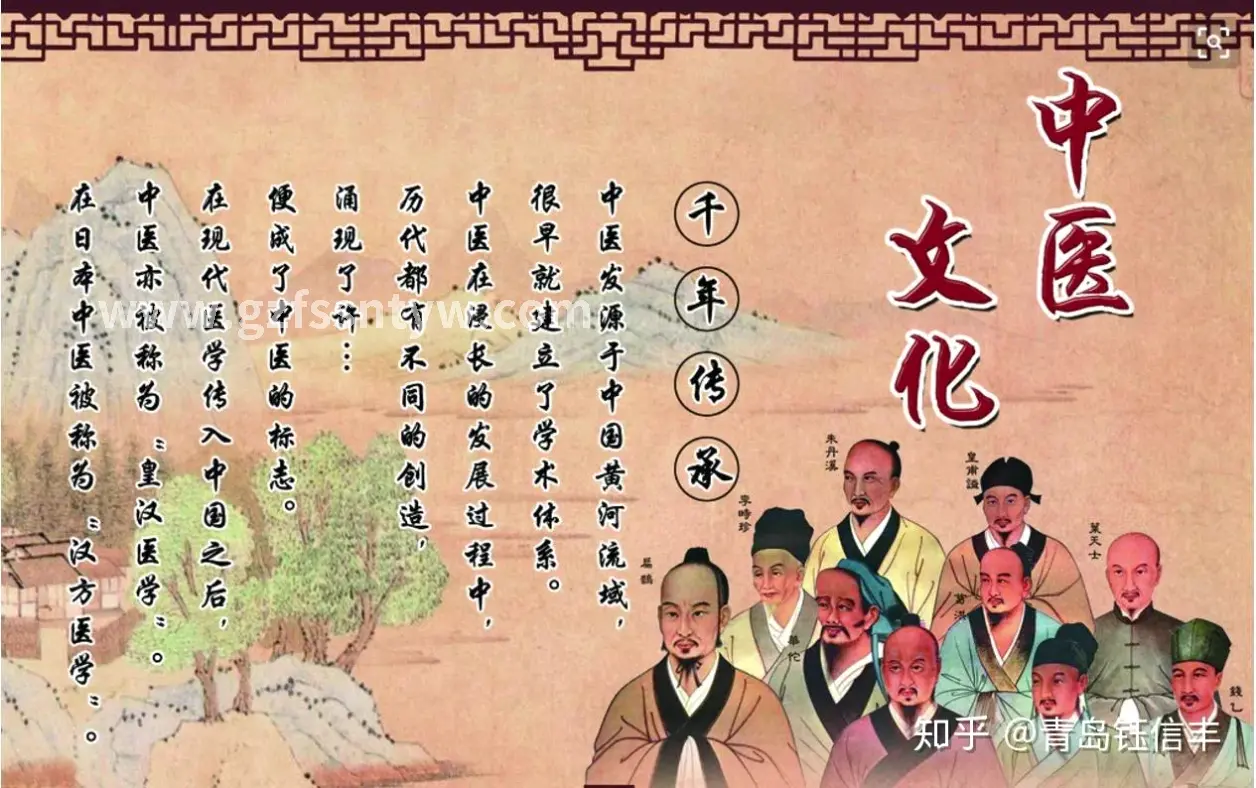 中医
文化
千年传承
中医发源于中国黄河流域，
很早就建立了学术体系。
中医在漫长的发展过程中，
历代都有不同的创造，
涌现了许…
便成了中医的标志。
在现代医学传入中国之后，
中医亦被称为“皇汉医学”。
在日本中医被称为“汉方医学”。
朱丹溪
皇甫謐
李時珍
葉天士
扁鵲
葛洪
華佗
錢乙
www.gzfsantyw.com
知乎 @青岛钰信丰